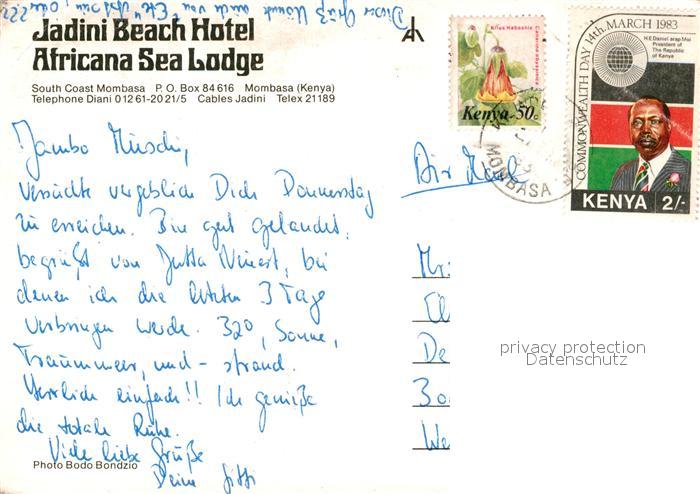 Dieser Gruß könnte auch von "Ete"
Jadini Beach Hotel
Africana Sea Lodge
South Coast Mombasa P. O. Box 84 616 Mombasa (Kenya)
Telephone Diani 012 61-20 21/5 Cables Jadini Telex 21189
Kenya 50c
COMMONWEALTH DAY 14th. MARCH 1983
H.E. Daniel arap Moi
President of
The Republic
of Kenya
KENYA 2/-
MOMBASA
Jambo
versuchte vergeblich Dich Donnerstag
zu erreichen. Bin gut gelandet,
begrüßt von Jutta, bei
denen ich die letzten 3 Tage
verbringen werde. 32°, Sonne,
Traummeer, und - strand.
Herrlich einfach!! Ich genieße
die totale Ruhe.
Viele liebe Grüße
Deine
Air Mail
De
30
We
privacy protection
Datenschutz
Photo Bodo Bondzio